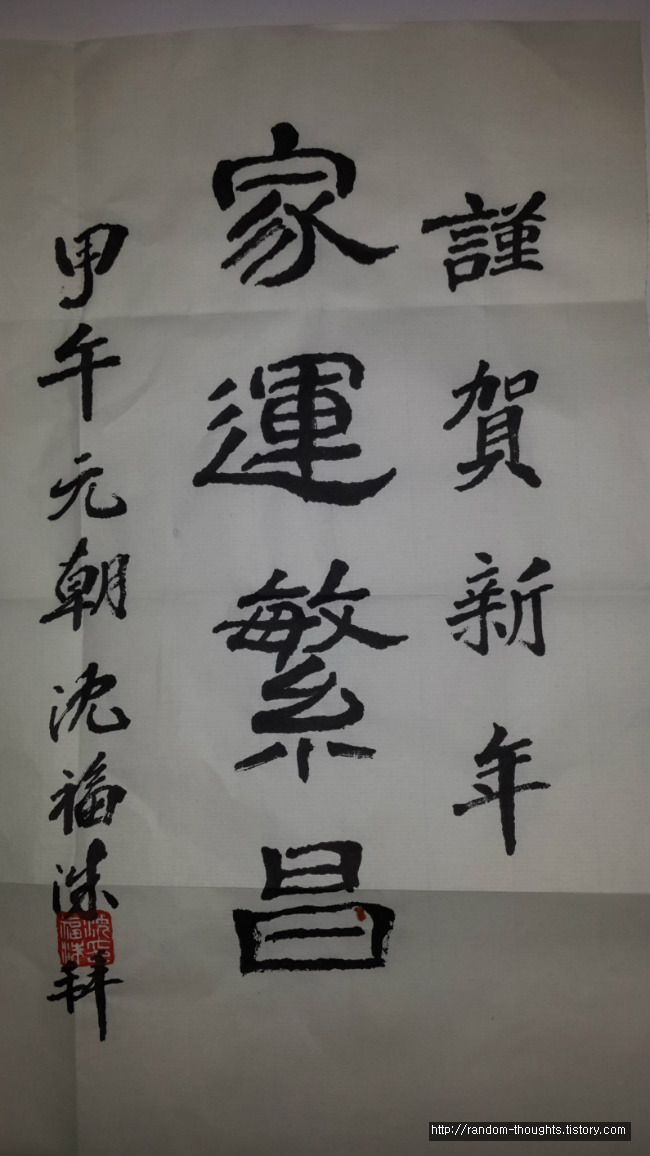 謹賀新年
家運繁昌
甲午元朝沈福洙拜
http://random-thoughts.tistory.com